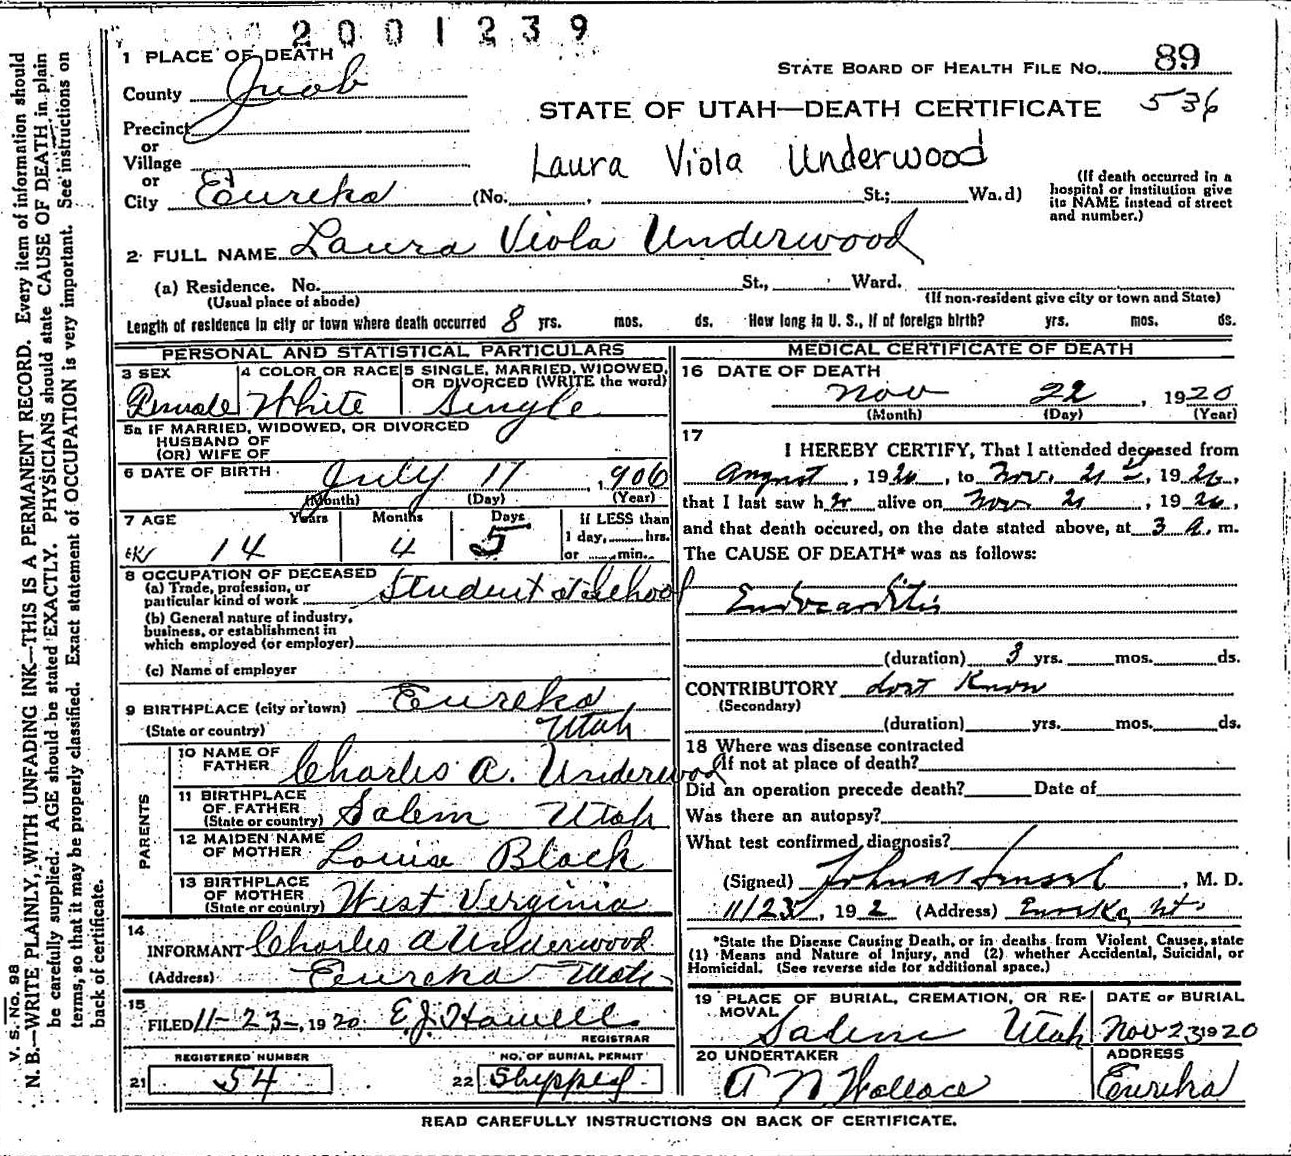 2001239
1 PLACE OF DEATH
STATE BOARD OF HEALTH FILE NO. 89
County Juab
STATE OF UTAH—DEATH CERTIFICATE 536
Precinct
or
Village
Laura Viola Underwood
or
City Eureka (No. , St.; Wa.d)
(If death occurred in a
hospital or institution give
its NAME instead of street
and number.)
2 FULL NAME Laura Viola Underwood
(a) Residence. No. St., Ward.
(Usual place of abode) (If non-resident give city or town and State)
Length of residence in city or town where death occurred 8 yrs. mos. ds. How long in U. S., if of foreign birth? yrs. mos. ds.
PERSONAL AND STATISTICAL PARTICULARS
3 SEX 4 COLOR OR RACE 5 SINGLE, MARRIED, WIDOWED,
OR DIVORCED (WRITE the word)
Female White Single
5a IF MARRIED, WIDOWED, OR DIVORCED
HUSBAND OF
(OR) WIFE OF
6 DATE OF BIRTH July 17, 1906
(Month) (Day) (Year)
7 AGE Years Months Days If LESS than
1 day, hrs.
or min.
14 4 5
8 OCCUPATION OF DECEASED
(a) Trade, profession, or
particular kind of work Student at School
(b) General nature of industry,
business, or establishment in
which employed (or employer)
(c) Name of employer
9 BIRTHPLACE (city or town) Eureka
(State or country) Utah
PARENTS
10 NAME OF
FATHER Charles A. Underwood
11 BIRTHPLACE
OF FATHER
(State or country) Salem Utah
12 MAIDEN NAME
OF MOTHER Louise Black
13 BIRTHPLACE
OF MOTHER
(State or country) West Virginia
14
INFORMANT Charles A Underwood
(Address) Eureka Utah
15
FILED 11-23-, 1920 E.J. Howell
REGISTRAR
REGISTERED NUMBER NO. OF BURIAL PERMIT
21 54 22 Shipped
MEDICAL CERTIFICATE OF DEATH
16 DATE OF DEATH
Nov 22, 1920
(Month) (Day) (Year)
17
I HEREBY CERTIFY, That I attended deceased from
August, 1920, to Nov. 21st, 1920,
that I last saw her alive on Nov 21, 1920,
and that death occured, on the date stated above, at 3 a. m.
The CAUSE OF DEATH* was as follows:
Endocarditis
(duration) 3 yrs. mos. ds.
CONTRIBUTORY Dont Know
(Secondary)
(duration) yrs. mos. ds.
18 Where was disease contracted
If not at place of death?
Did an operation precede death? Date of
Was there an autopsy?
What test confirmed diagnosis?
(Signed) , M. D.
11/23, 192 (Address) Eureka, Ut.
*State the Disease Causing Death, or in deaths from Violent Causes, state
(1) Means and Nature of Injury, and (2) whether Accidental, Suicidal, or
Homicidal. (See reverse side for additional space.)
19 PLACE OF BURIAL, CREMATION, OR RE-
MOVAL DATE OF BURIAL
Salem Utah Nov 23 1920
20 UNDERTAKER ADDRESS
A N Wallace Eureka
READ CAREFULLY INSTRUCTIONS ON BACK OF CERTIFICATE.
V. S. No. 98
N. B.—WRITE PLAINLY, WITH UNFADING INK—THIS IS A PERMANENT RECORD. Every item of information should
be carefully supplied. AGE should be stated EXACTLY. PHYSICIANS should state CAUSE OF DEATH in plain
terms, so that it may be properly classified. Exact statement of OCCUPATION is very important. See instructions on
back of certificate.